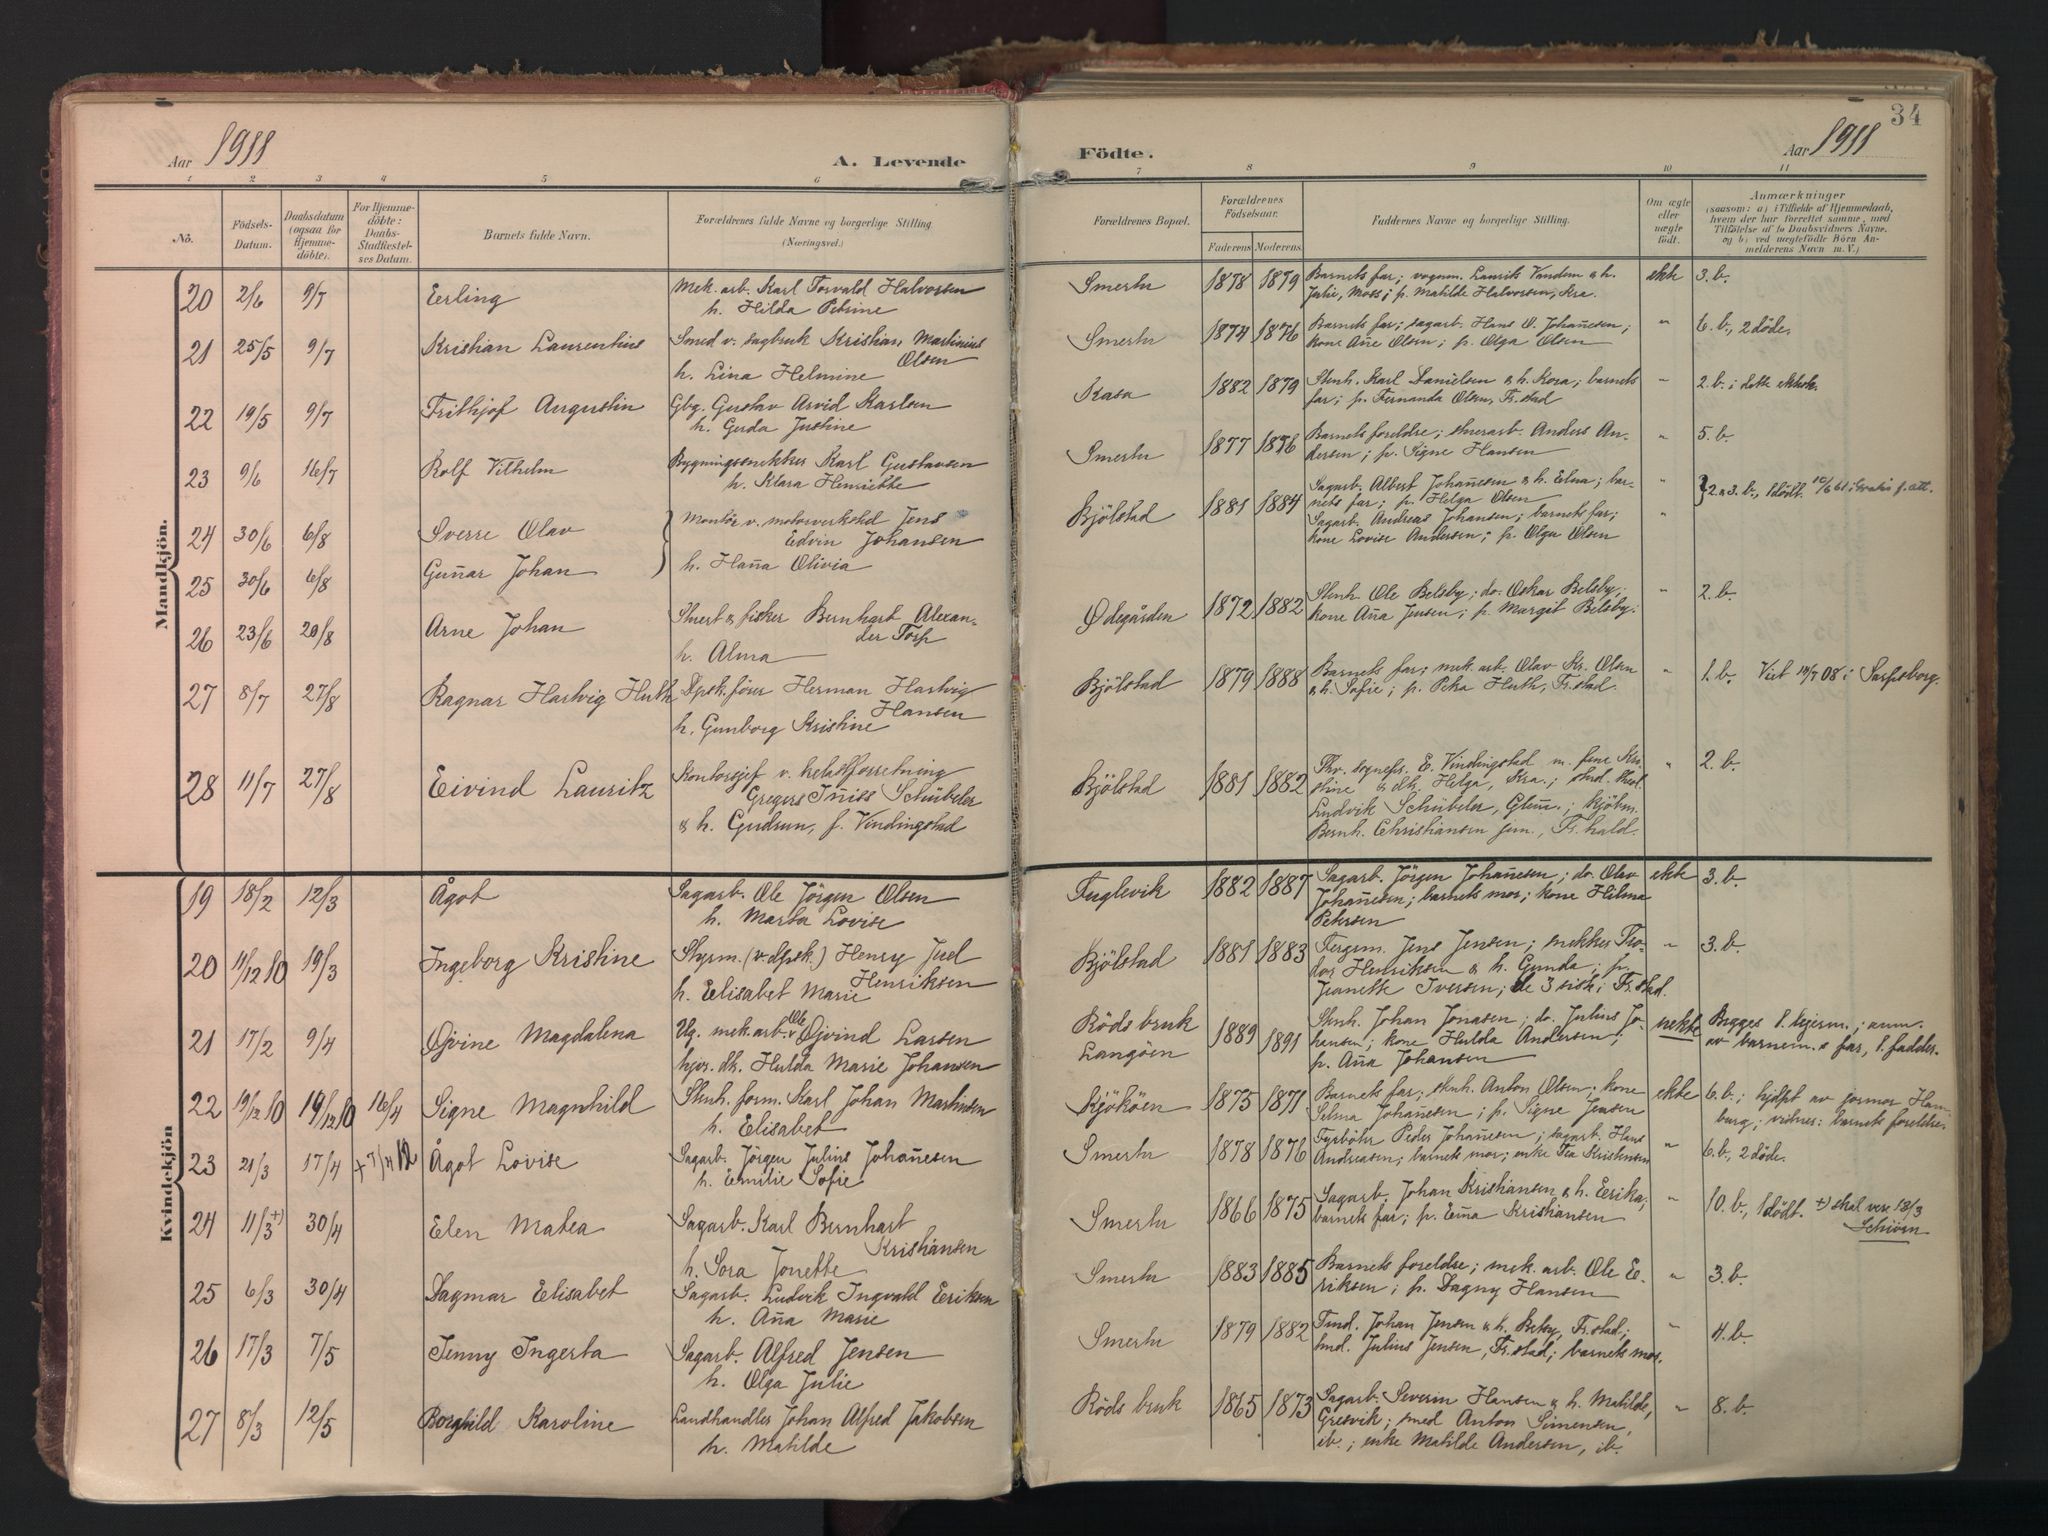 34
Aar 1911
A. Levende
Födte.
Aar 1911
1 2 3 4 5 6 7 8 9 10 11
No.
Födsels-Datum.
Daabsdatum (ogsaa for Hjemmedöbte).
For Hjemmedöbte: Daabs-Stadfæstelses Datum.
Barnets fulde Navn.
Forældrenes fulde Navne og borgerlige Stilling (Næringsvei.)
Forældrenes Bopæl.
Forældrenes Födselsaar.
Faderens Moderens
Faddernes Navne og borgerlige Stilling.
Om ægte eller uægte födt.
Anmærkninger
(saasom: a) i Tilfælde af Hjemmedaab, hvem der har forrettet samme, med Tilföielse af to Daabsvidners Navne, og b) ved uægtefödte Börn Anmelderens Navn m. V.)
Mandkjön.
20 2/6 9/7 Erling
Mek. arb. Karl Torvald Halvorsen
h. Hilda Petrine
Smertu 1878 1879
Barnets far; vognm. Laurits Vandem & h.
Julie, Moss; p. Matilde Halvorsen, Kra.
ekte 3. b.
21 25/5 9/7 Kristian Laurentius
Smed v. sagbruk Kristian Martinius
Olsen
h. Lina Helmine
Smertu 1874 1876
Barnets far; sagarb. Hans O. Johannesen;
kone Ane Olsen; p. Olga Olsen
" 6. b., 2 döde.
22 19/5 9/7 Frithjof Augustin
Gbg. Gustav Arvid Karlsen
h. Gerda Justine
Kasa 1882 1879
Stenh. Karl Danielsen & h. Kora; barnets
far; p. Fernanda Olsen, Fr.stad
" 2. b. i dette ektesk.
23 9/6 16/7 Rolf Vilhelm
Bygningssnekker Karl Gustavsen
h. Klara Henriette
Smertu 1877 1876
Barnets foreldre; stuerarb. Anders An-
dersen; p. Signe Hansen
" 5. b.
24 30/6 6/8 Sverre Olav
25 30/6 6/8 Gunnar Johan
Montör v. motorverksted Jens
Edvin Johansen
h. Hanna Olivia
Bjölstad 1881 1884
Sagarb. Albert Johannesen & h. Elna; bar-
nets far; p. Helga Olsen
Sagarb. Andreas Johansen; barnets far;
kone Lovise Andersen; p. Olga Olsen
" 2. & 3. b., 1 dödf. 10/6 61 Gratis f. att.
26 23/6 20/8 Arne Johan
Stuert & fisker Bernhart Alexan-
der Torp
h. Alma
Ødegården 1872 1882
Stenh. Ole Belsby; do. Oskar Belsby;
kone Anna Jensen; p. Margit Belsby.
" 2. b.
27 8/7 27/8 Ragnar Hartvig Huth
Dpsk. förer Herman Hartvig
Hansen
h. Gunborg Kristine
Bjölstad 1879 1888
Barnets far; mek. arb. Olav Kr. Olsen
& h. Sofie; p. Petra Huth, Fr.stad.
" 1. b. Viet 08 i Sarpsborg.
28 11/7 27/8 Eivind Lauritz
Kontorsjef v. trelastforretning
Gregers Inniss Schübeler
& h. Gudrun, f. Vindingstad
Bjölstad 1881 1882
Fhv. sognepr. E. Vindingstad m. frue Kri-
stine & dtr. Helga, Kra.; stud. med.
Ludvik Schübeler, Glem.; kjöbm.
Bernh. Christiansen jun., Fr.hald.
" 2. b.
Kvindekjön
19 18/2 12/3 Ågot
Sagarb. Ole Jörgen Olsen
h. Marta Lovise
Fuglevik 1882 1887
Sagarb. Jörgen Johannesen; do. Olav
Johannesen; barnets mor; kone Hilma
Petersen
ekte 3. b.
20 11/12 10 19/3 Ingeborg Kristine
Styrm. (v. dpsk.) Henry Juel
Henriksen
h. Elisabet Marie
Bjölstad 1881 1883
Fergem. Jens Jensen; snekker Teo-
dor Henriksen & h. Gunda; p.
Jeanette Iversen; de 3 sist i Fr.stad.
" 3. b.
21 17/2 9/4 Øivine Magdalena
Ug. mek. arb. Ole Øivind Larsen
hjv. dtr. Hulda Marie Johansen
Röds bruk
Langöen
1889 1891
Stenh. Johan Jonasen; do. Julius Jo-
hansen; kone Hulda Andersen;
p. Anna Johansen
uekte Begges 1. leierm.; anm.
av barnem. & far, 1. fadder.
22 19/12 10 19/12 10 16/4 Signe Magnhild
Stenh. form. Karl Johan Martinsen
h. Elisabet
Kjököen 1875 1871
Barnets far; stenh. Anton Olsen; kone
Selma Johannesen; p. Signe Jensen
ekte 6. b.; hjdpt av jormor Ham-
burg; vidner: barnets foreldre.
23 21/3 17/4 + 7/4 12 Ågot Lovise
Sagarb. Jörgen Julius Johannesen
h. Emilie Sofie
Smertu 1878 1876
Fyrböter Peder Johannesen; sagarb. Hans
Andreasen; barnets mor; enke Tea Kristensen
" 6. b., 2 döde.
24 11/3 +) 30/4 Elen Matea
Sagarb. Karl Bernhart
Kristiansen
h. Sora Jonette
Smertu 1866 1875
Sagarb. Johan Kristiansen & h. Erika;
barnets far; p. Emma Kristiansen
" 10. b., 1 dödf. +) skal vere 18/3
Schiörn
25 6/3 30/4 Dagmar Elisabet
Sagarb. Ludvik Ingvald Eriksen
h. Anna Marie
Smertu 1883 1885
Barnets foreldre; mek. arb. Ole E-
riksen; p. Dagny Hansen
" 3. b.
26 17/3 7/5 Jenny Ingerta
Sagarb. Alfred Jensen
h. Olga Julie
Smertu 1879 1882
Tmd. Johan Jensen & h. Betsy, Fr.stad;
tmd. Julius Jensen, Fr.stad; barnets mor.
" 4. b.
27 8/3 12/5 Borghild Karoline
Landhandler Johan Alfred Jakobsen
h. Matilde
Röds bruk 1865 1873
Sagarb. Severin Hansen & h. Matilde,
Gresvik; smed Anton Simensen,
ib.; enke Matilde Andersen, ib.
" 8. b.